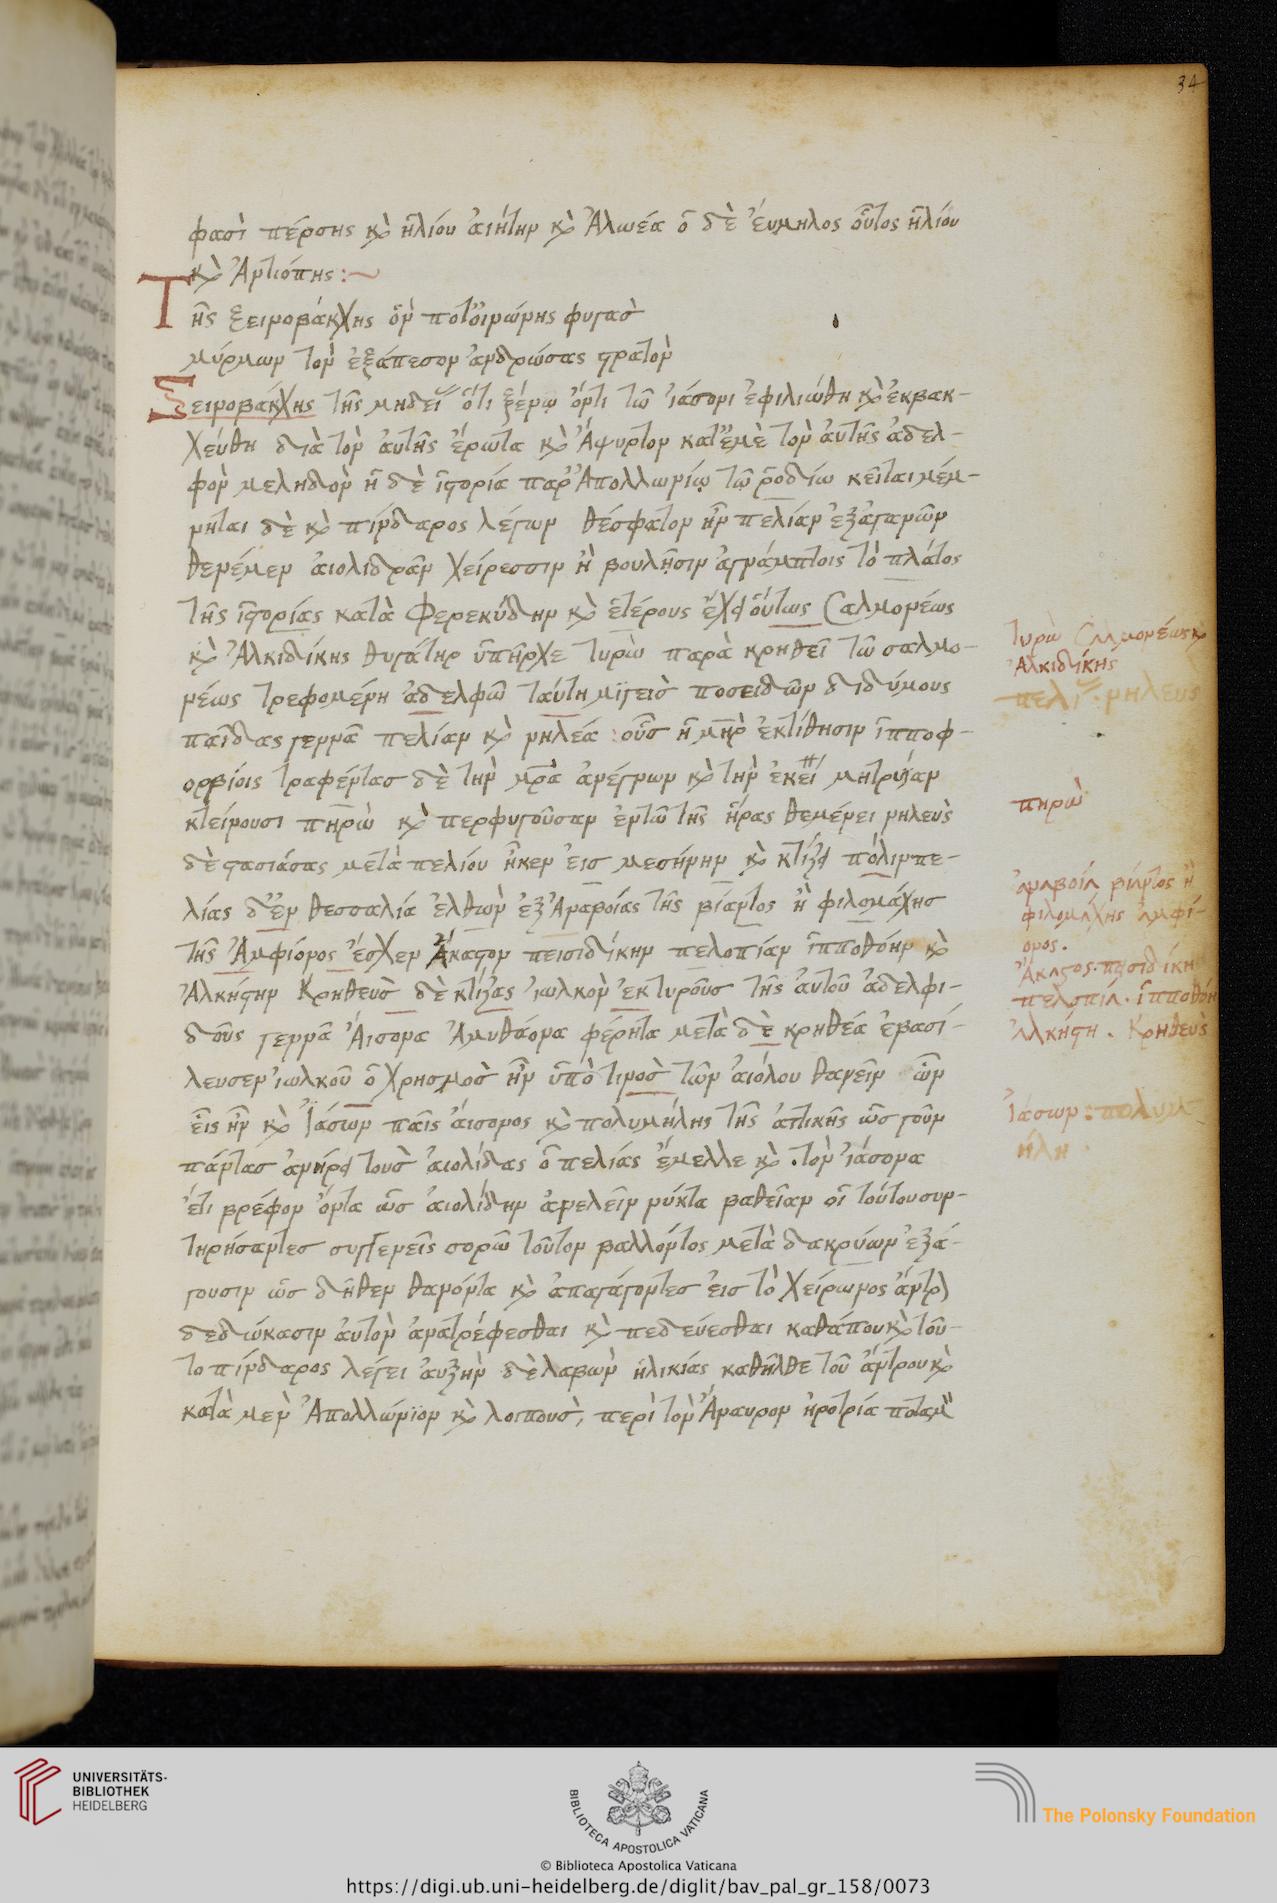 34
φασὶ πέρσης κὶ ἡλίου ἀιήτην κὶ Ἀλωέα ὁ δὲ ἔυμηλος οὗτος ἡλίου
κὶ Ἀντιόπης :~
Τῆς ξεινοβάκχης ὅν ποτ' οἰνώνης φυγὰσ
μύρμων τὸν ἑξάπεζον ἀνδρώσας στρατὸν
Ξεινοβάκχης τῆς μηδεί ὅτι ξένῳ ὄντι τῶ ἰάσονι ἐφιλιώθη κὶ ἐκβακ-
χεύθη διὰ τὸν ἀυτῆς ἔρωτα κὶ Ἄψυρτον κατ' ἐμὲ τὸν ἀυτῆς ἀδελ-
φὸν μεληδὸν ἡ δὲ ἱστορία παρ' Ἀπολλωνίῳ τῷ ῥοδίω κεῖται μέμ-
νηται δὲ κὶ πίνδαρος λέγων θέσφατον ἦν πελίαν ἐξ ἀγανῶν
θενέμεν ἀιολιδᾶν χείρεσσιν ἢ βουλῇσιν ἀγνάμπτοις τὸ πλάτος
τῆς ἱστορίας κατὰ Φερεκύδην κὶ ἑτέρους ἔχει ὅυτως Σαλμονέως
κὶ Ἀλκιδίκης θυγάτηρ ὑπῆρχε τυρὼ παρὰ κρηθεῖ τῶ σαλμο-
νέως τρεφομένη ἀδελφῶ ταύτη μιγεὶσ ποσειδῶν διδύμους
παῖδας γεννᾶ πελίαν κὶ νηλέα : οὓσ ἡ μηρ ἐκτίθησιν ἱπποφ-
ορβίοις τραφέντασ δὲ τὴν μρα ἀνέγνων κὶ τὴν ἐκεί μητρυιάν
κτείνουσι πηρὼ κὶ περφυγοῦσαν ἐν τῶ τῆς ἥρας θεμένει νηλεὺς
δὲ στασιάσας μετὰ πελίου ἧκεν εἰσ μεσήνην κὶ κτίζει πόλιν πε-
λίας δ' ἐν θεσσαλία ἐλθὼν ἐξ Ἀναβοίας τῆς βίαντος ἢ φιλομάχησ
τῆς Ἀμφίονος ἔσχεν Ἄκαστον πεισιδίκην πελοπίαν ἱπποθόην κὶ
Ἀλκήστην Κρηθεὺσ δὲ κτίζας ἰωλκὸν ἐκ τυροῦσ τῆς ἀυτοῦ ἀδελφι-
δοῦς γεννᾶ Ἄισονα Ἀμυθάονα φέρητα μετὰ δὲ κρηθέα ἐβασί-
λευσεν ἰωλκοῦ ὁ χρησμοσ ἦν ὑπὸ τινοσ τῶν ἀιόλου θανεῖν ὧν
εἷς ἦν κὶ Ἰάσων παῖς ἄισονος κὶ πολυμήλης τῆς ἀττικῆς ὡσ γοῦν
πάντασ ἀνήρει τουσ ἀιολίδας ὁ πελίας ἔμελλε κὶ . τὸν ἰάσονα
ἔτι βρέφον ὄντα ὡσ ἀιολίδην ἀνελεῖν νύκτα βαθεῖαν οἱ τούτου συν-
τηρήσαντεσ συγγενεῖς σορῶ τοῦτον βαλλόντος μετὰ δακρύων ἐξά-
γουσιν ὡσ δῆθεν θανόντα κὶ ἀπαγάγοντεσ ἐισ τὸ χείρωνος ἄντρ
δεδώκασιν ἀυτὸν ἀνατρέφεσθαι κὶ πεδεύεσθαι καθάπου κὶ τοῦ-
το πίνδαρος λέγει ἀυξὴν δὲ λαβὼν ἡλικίας καθῆλθε τοῦ ἄντρου κὶ
κατὰ μεν Ἀπολλώνιον κὶ λοιποὺσ, περὶ τὸν Ἄναυρον ἠροτρία ποταμ
τυρὼ Σαλμονέως κὶ
Ἀλκιδίκης
πελί . νηλευς
πηρὼ
Ἀναβοία βίαντος ἢ
φιλομάχης Ἀμφί-
ονος.
Ἄκαστος . πισιδίκη
πελοπία . ἱπποθόη
Ἀλκήστη . Κρηθεὺς
Ἰάσων : πολυμ
ήλη .
UNIVERSITÄTS-
BIBLIOTHEK
HEIDELBERG
BIBLIOTECA APOSTOLICA VATICANA
© Biblioteca Apostolica Vaticana
The Polonsky Foundation
https://digi.ub.uni-heidelberg.de/diglit/bav_pal_gr_158/0073